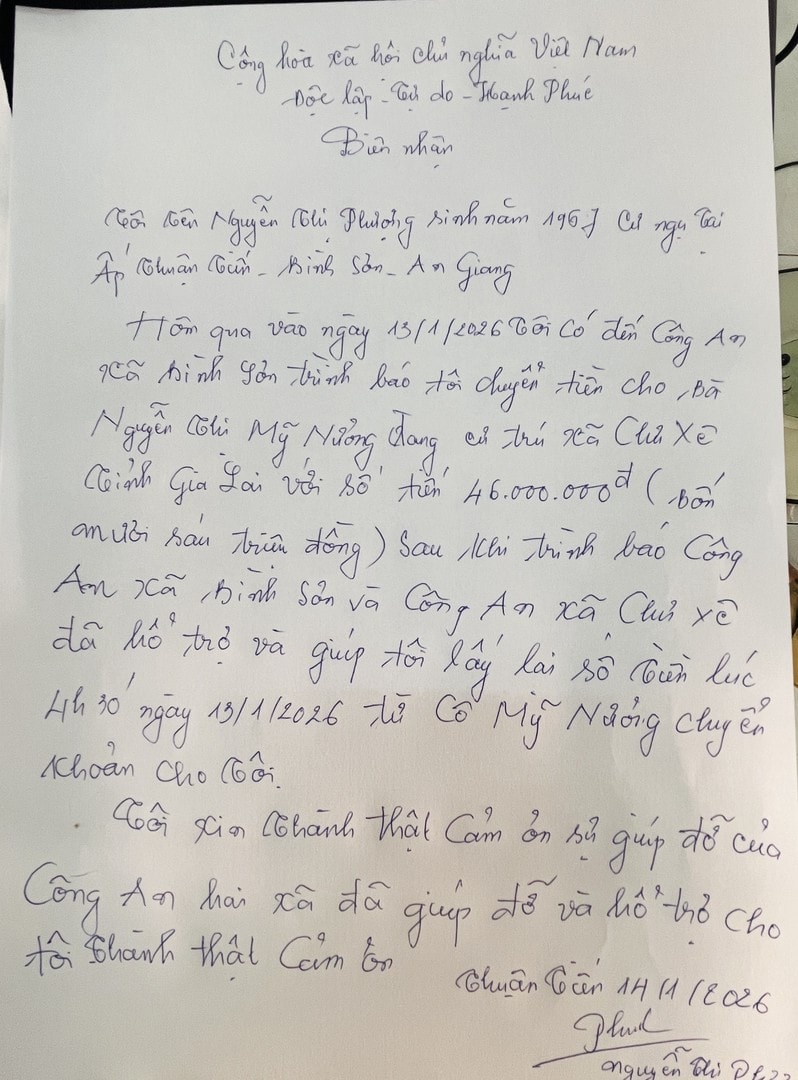 Cộng hòa xã hôi chủ nghĩa Việt Nam
Độc lập - Tự do - Hạnh Phúc
Biên nhận
Tôi tên Nguyễn Thị Phượng sinh năm 1967 cư ngụ tại
Ấp Thuận Tiến - Bình Sơn - An Giang
Hôm qua vào ngày 13/1/2026 tôi có đến Công An
xã Bình Sơn trình báo tôi chuyển tiền cho Bà
Nguyễn Thi Mỹ Nương đang cư trú xã Chư Xê
Tỉnh Gia Lai với số tiền 46.000.000đ ( bốn
mươi sáu triệu đồng ) sau khi trình báo Công
An xã Bình Sơn và Công An xã Chư Xê
đã hổ trợ và giúp tôi lấy lại số tiền lúc
4h 30' ngày 13/1/2026 từ Cô Mỹ Nương chuyển
khoản cho tôi.
Tôi xin thành thật cảm ơn sự giúp đỡ của
Công An hai xã đã giúp đỡ và hổ trợ cho
tôi thành thật cảm ơn
Thuận Tiến 14/1/2026
Nguyễn Thị